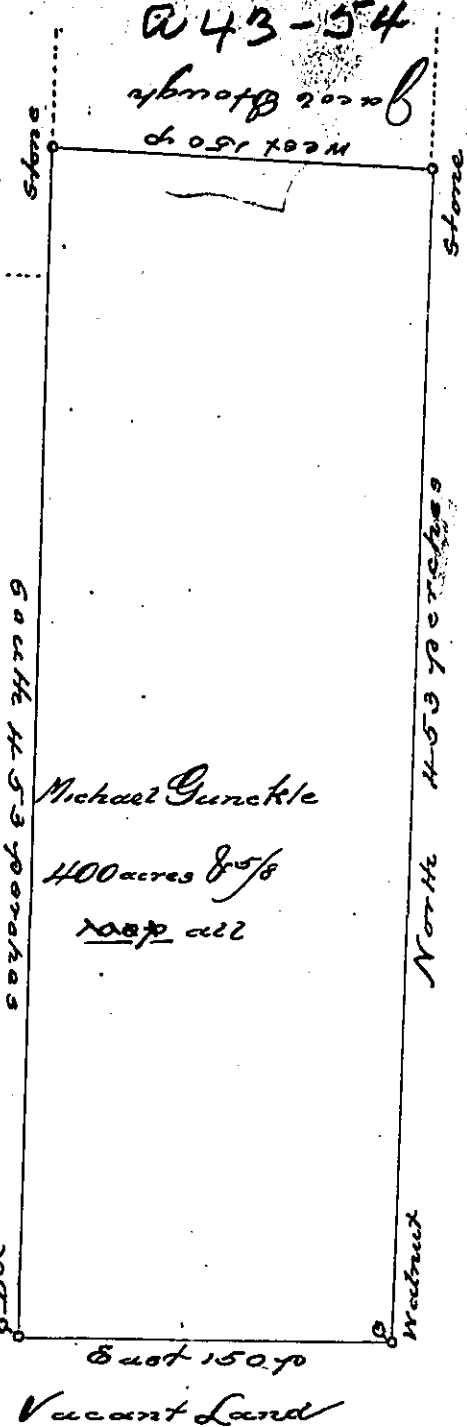 43-54
Jacob Stough
West 150 p
Stone
Stone
South 453 perches
North 453 perches
Michael Gunckle
400 acres & 5/8
all
Walnut
East 150 p
Vacant Land